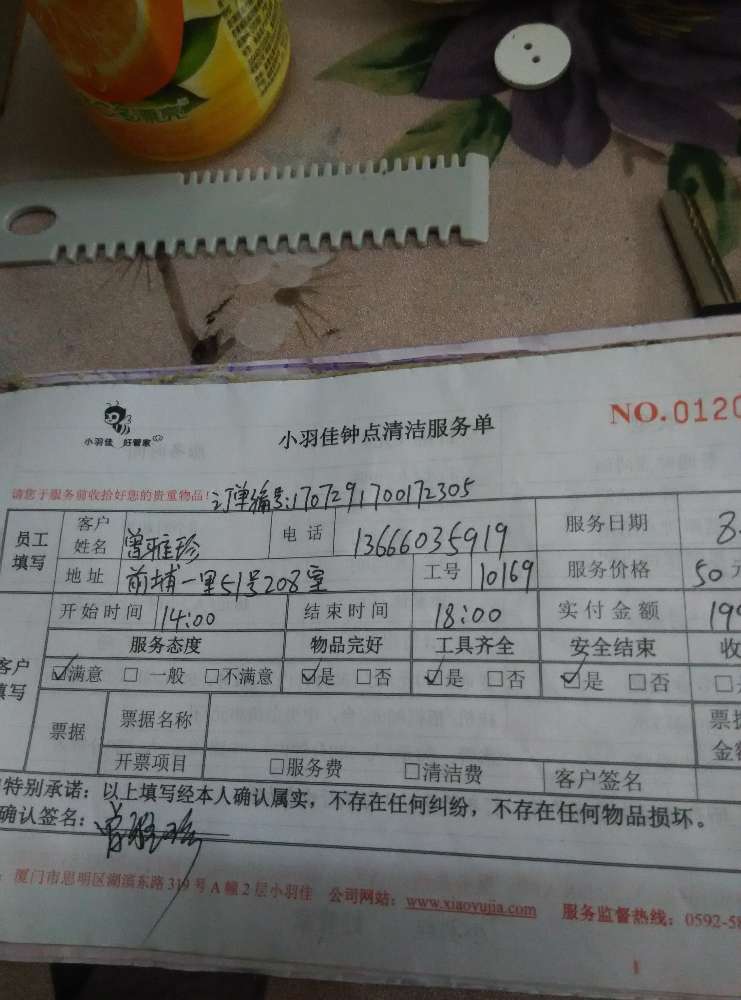 小羽佳 好管家
小羽佳钟点清洁服务单
NO. 0120
请您于服务前收拾好您的贵重物品!
订单编号:1707291700172305
员工填写 客户姓名 曾雅珍 电话 13666035919 服务日期 8.
地址 前埔一里51号208室 工号 10169 服务价格 50元
开始时间 14:00 结束时间 18:00 实付金额 199
客户填写 服务态度 物品完好 工具齐全 安全结束 收
☑满意 □一般 □不满意 ☑是 □否 ☑是 □否 ☑是 □否
票据 票据名称 票据金额
开票项目 □服务费 □清洁费 客户签名
特别承诺:以上填写经本人确认属实,不存在任何纠纷,不存在任何物品损坏。
确认签名:曾雅珍
厦门市思明区湖滨东路319号A幢2层小羽佳 公司网站:www.xiaoyujia.com 服务监督热线:0592-58